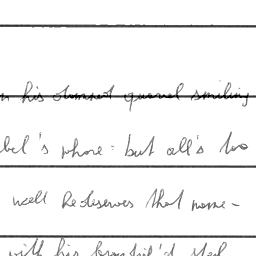 n his damned quarrel smiling
bel's whore: but all's too
well he deserves that name-
with his brandish'd steel